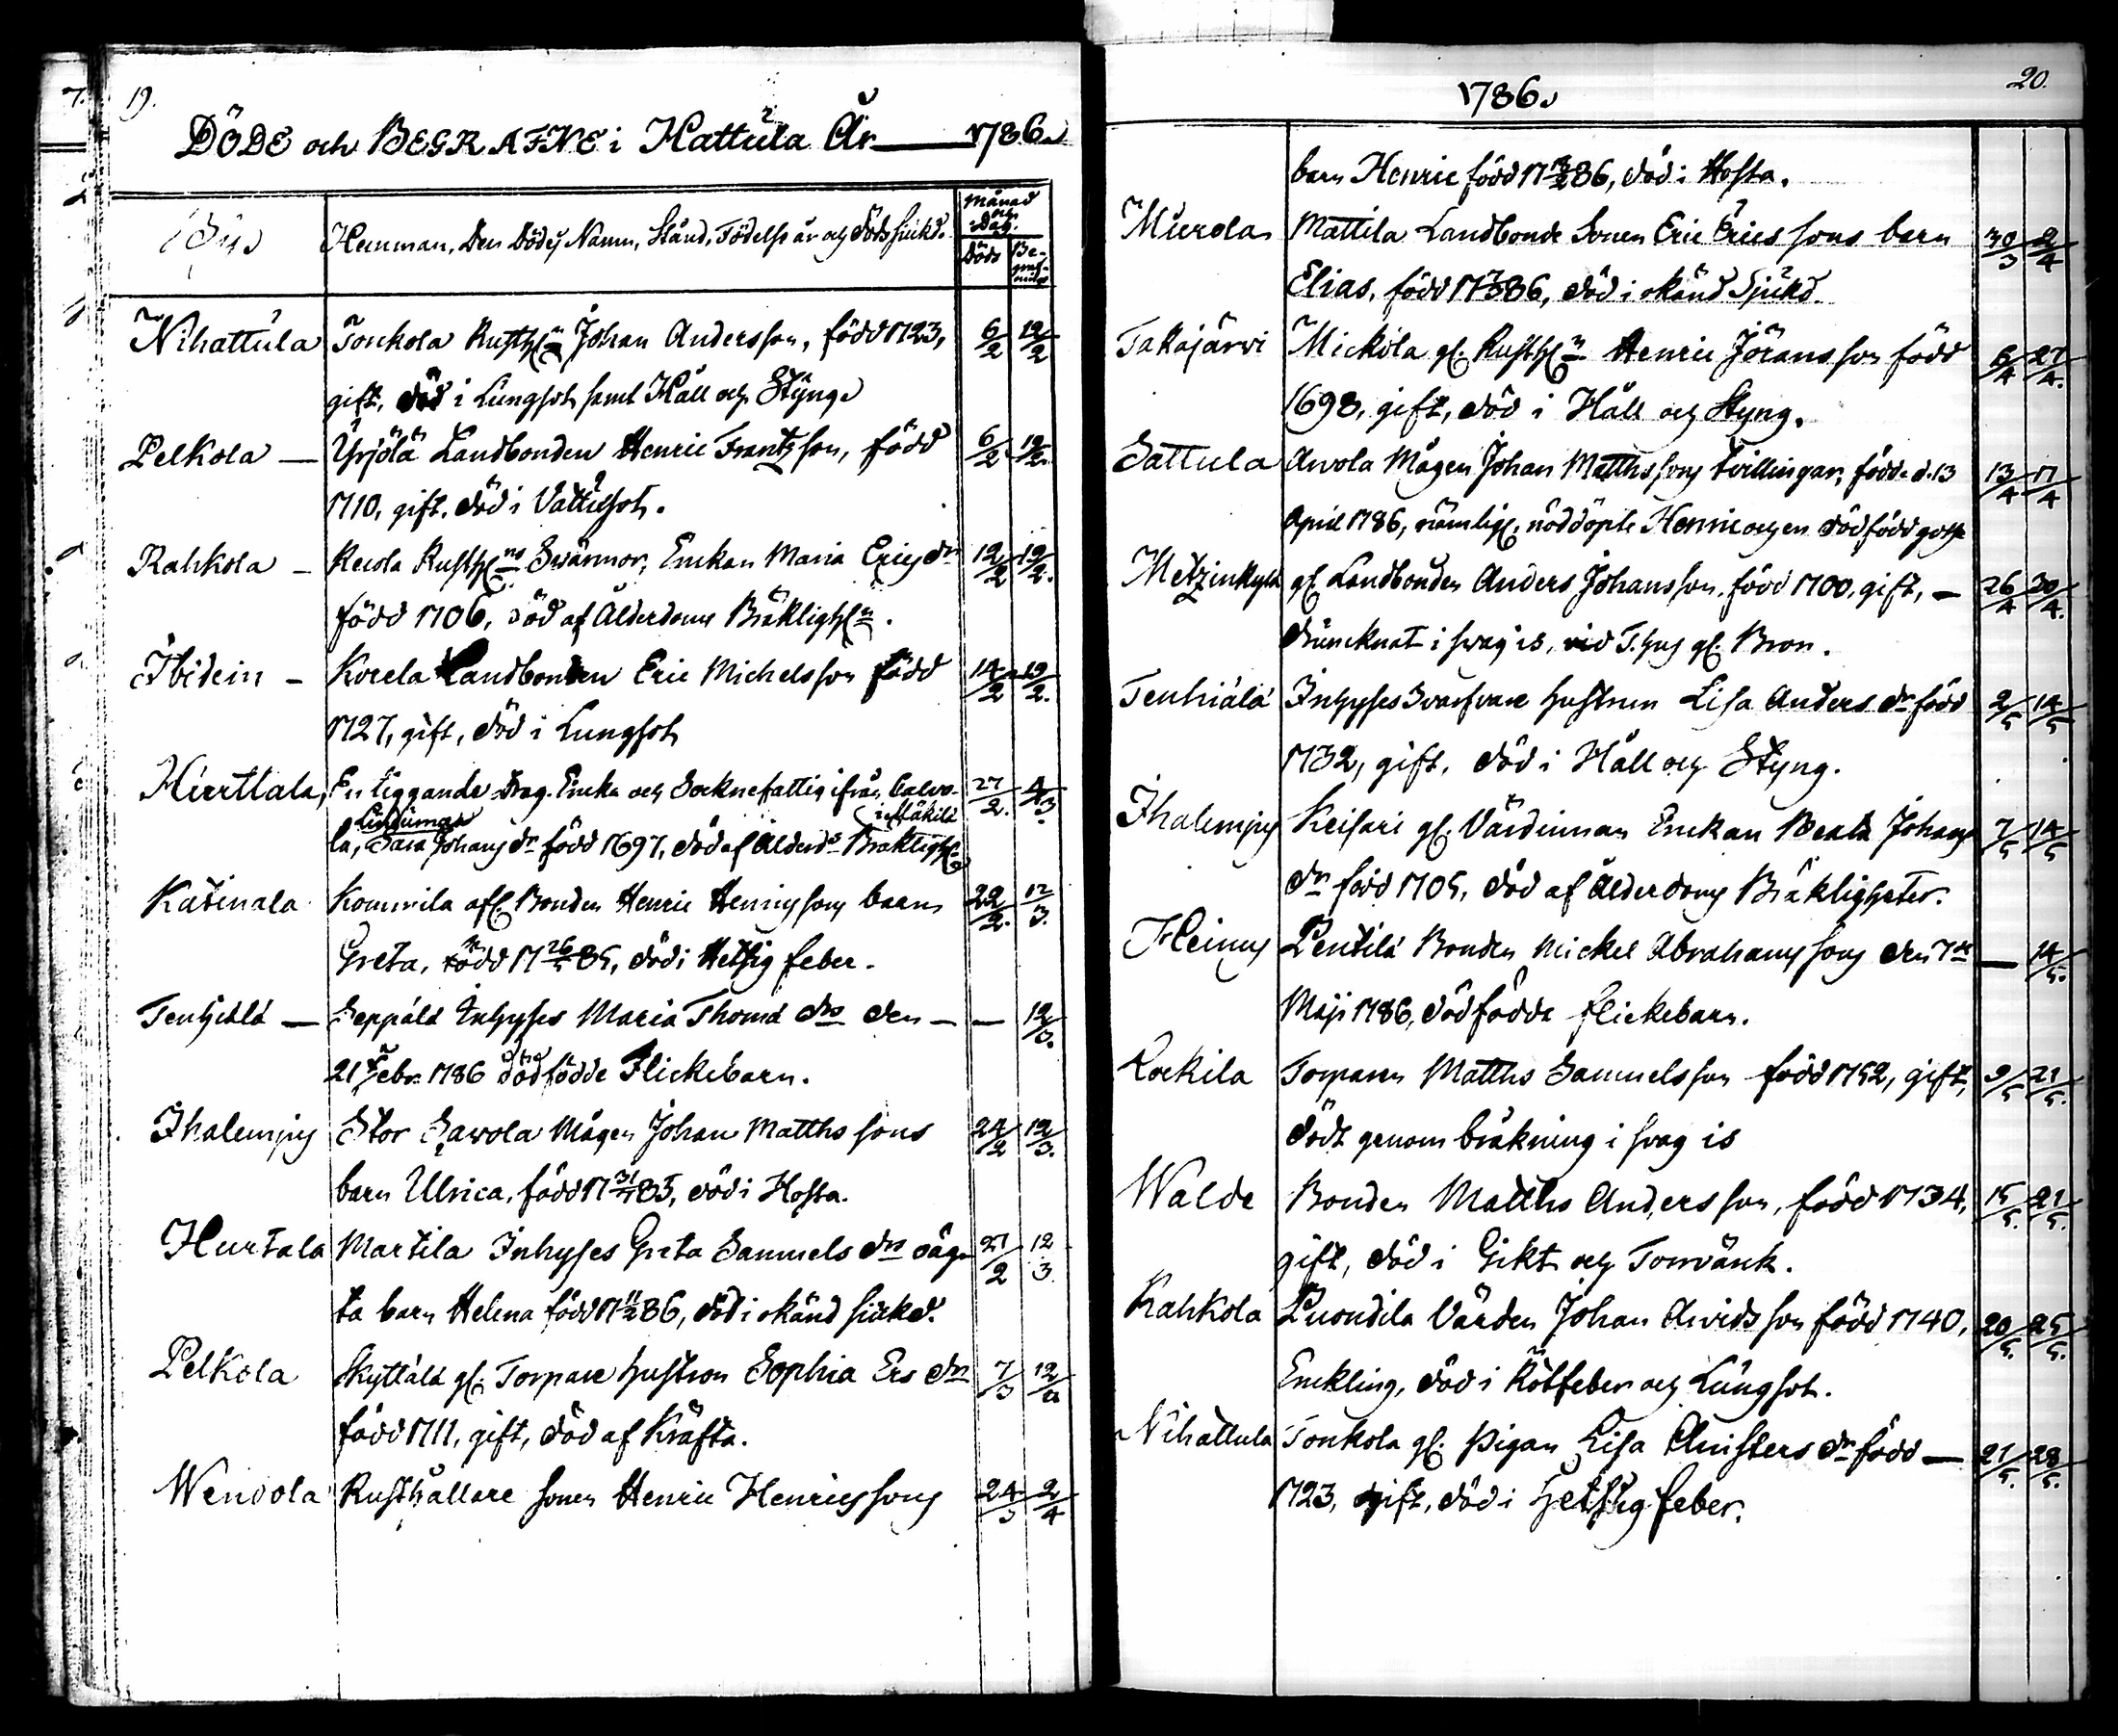 19.
DÖDE och BEGRAFNE i Hattula År 1786.
By
Hemman, Den Dödes Namn, Stånd, Födelse år och Döds siukd.
Månad och Dag.
Döds Begrafnings
Nihattula Tonkola Rusth:n Johan Andersson, född 1723, 6/2 12/2
gift, död i Lungsot samt Håll och Styng
Pelkola — Yrjölä Landbonden Henric Frantzson, född 6/2 12/2.
1710, gift, död i Vattusot.
Rahkola — Rusth:ns Swärmor, Enkan Maria Ericsdr 12/2 19/2.
född 1706, död af Ålderdoms Bräkligh:n.
Ibidem — Landbonden Eric Michelsson född 14/2 19/2.
1727, gift, död i Lungsot
Hurttala, En liggande Drag. Enka och Socknefattig ifrån Calvo- 27/2. 4/3
Lindiman i Mäkilä
la, Sara Johansdr född 1697, död af Ålderds Bräkligh:
Katinala Bonden Henric Henricssons barn 22/2. 12/3.
Greta, född 17 26/5 85, död i Hetsig feber.
Tenhiälä — Seppälä Inhyses Maria Thomædrs den — — 12/3.
21 Febr. 1786 dödfödde Flickebarn.
Ihalempis Stor Sawola Mågen Johan Matthssons 24/2 12/3.
barn Ulrica, född 17 31/ 85, död i Hosta.
Hurtala Martila Inhyses Greta Samuelsdrs oäg- 27/2 12/3.
ta barn Helena född 17 11/2 86, död i okänd siukd.
Pelkola Skyttälä gl. Torpare hustrun Sophia Ersdr 7/3 12/
född 1711, gift, död af Kräfta.
Wenvola Rusthållare sonen Henric Henricssons 24/3 2/4
1786.
20.
barn Henric född 17 /2 86, död i Hosta.
Murola Mattila Landbonde Sonen Eric Ericssons barn 30/3 2/4
Elias, född 17 /3 86, död i okänd Sjukd.
Takajärwi Mickola gl. Rusth:n Henric Jöransson född 6/4 27/4.
1698, gift, död i Håll och Styng.
Sattula Arvola Mågen Johan Matthssons tvillingar, födde d. 13 13/4 17/4
April 1786, nämlig:, nöddöpte Henric och en dödfödd gosse
Metzinkylä gl. Landbonden Anders Johansson, född 1700, gift, — 26/4 30/4.
drunknat i swag is, vid T:hus gl. Bron.
Tenhiälä Inhyses Svarfvare hustrun Lisa Andersdr född 2/5 14/5
1732, gift, död i Håll och Styng.
Ihalempis Keisari gl. Värdinnan Enkan Beata Johans 7/5 14/5
dr född 1705, död af Ålderdoms Bräkligheter.
Heinus Pentilä Bonden Mickel Abrahamssons den 7de — 14/5.
Maji 1786, dödfödde flickebarn.
Lockila Torparen Matths Samuelsson född 1752, gift, 9/5 21/5.
Dödt genom bräkning i swag is
Walde Bonden Matths Andersson, född 1734, 15/5. 21/5.
gift, död i Gikt och Torrvärk.
Rahkola Värden Johan Arvidsson född 1740, 20/5. 25/5.
Enckling, död i Rötfeber och Lungsot.
Nihattula Tonkola gl. Pigan Lisa Christersdr född — 21/5. 28/5.
1723, ogift, död i Hetsig feber.